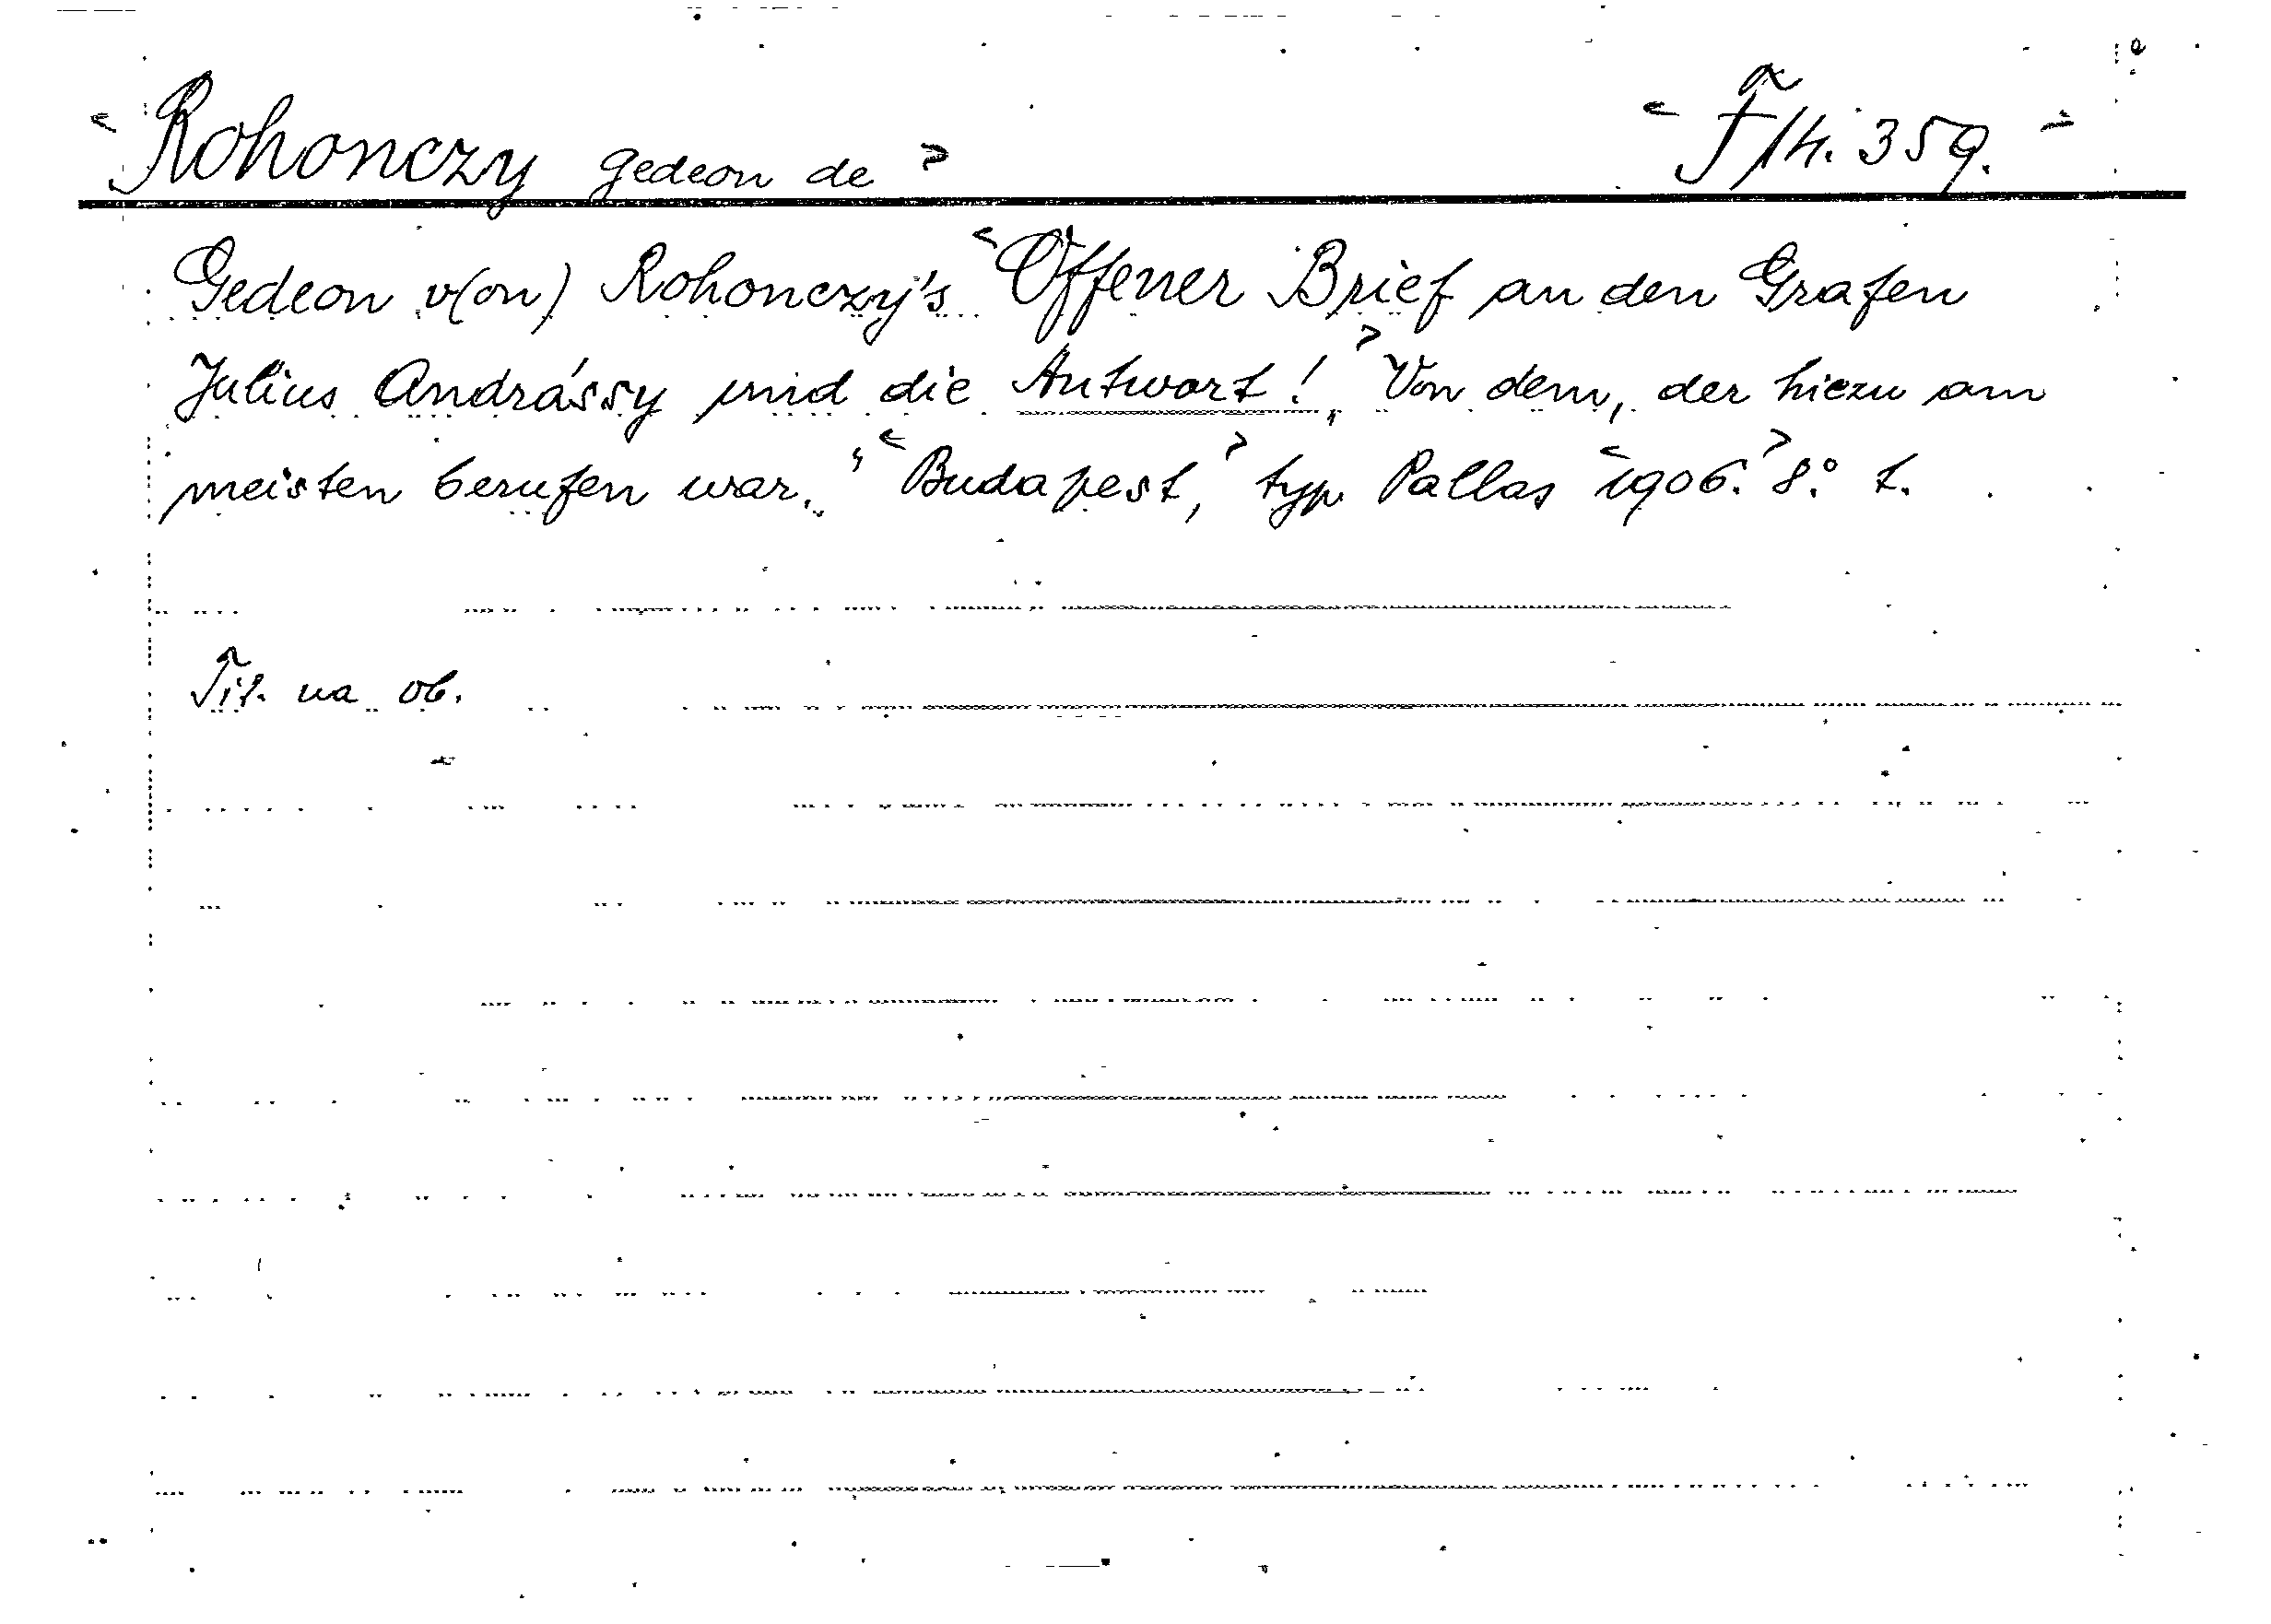 <Rohonczy Gedeon de> <F 14. 359.>
Gedeon v(on) Rohonczy's <Offener Brief an den Grafen
Julius Andrássy und die Antwort!> Von dem, der hiezu am
meisten berufen war. <Budapest,> typ. Pallas <1906.> 8.° t.
Tit. na ob.